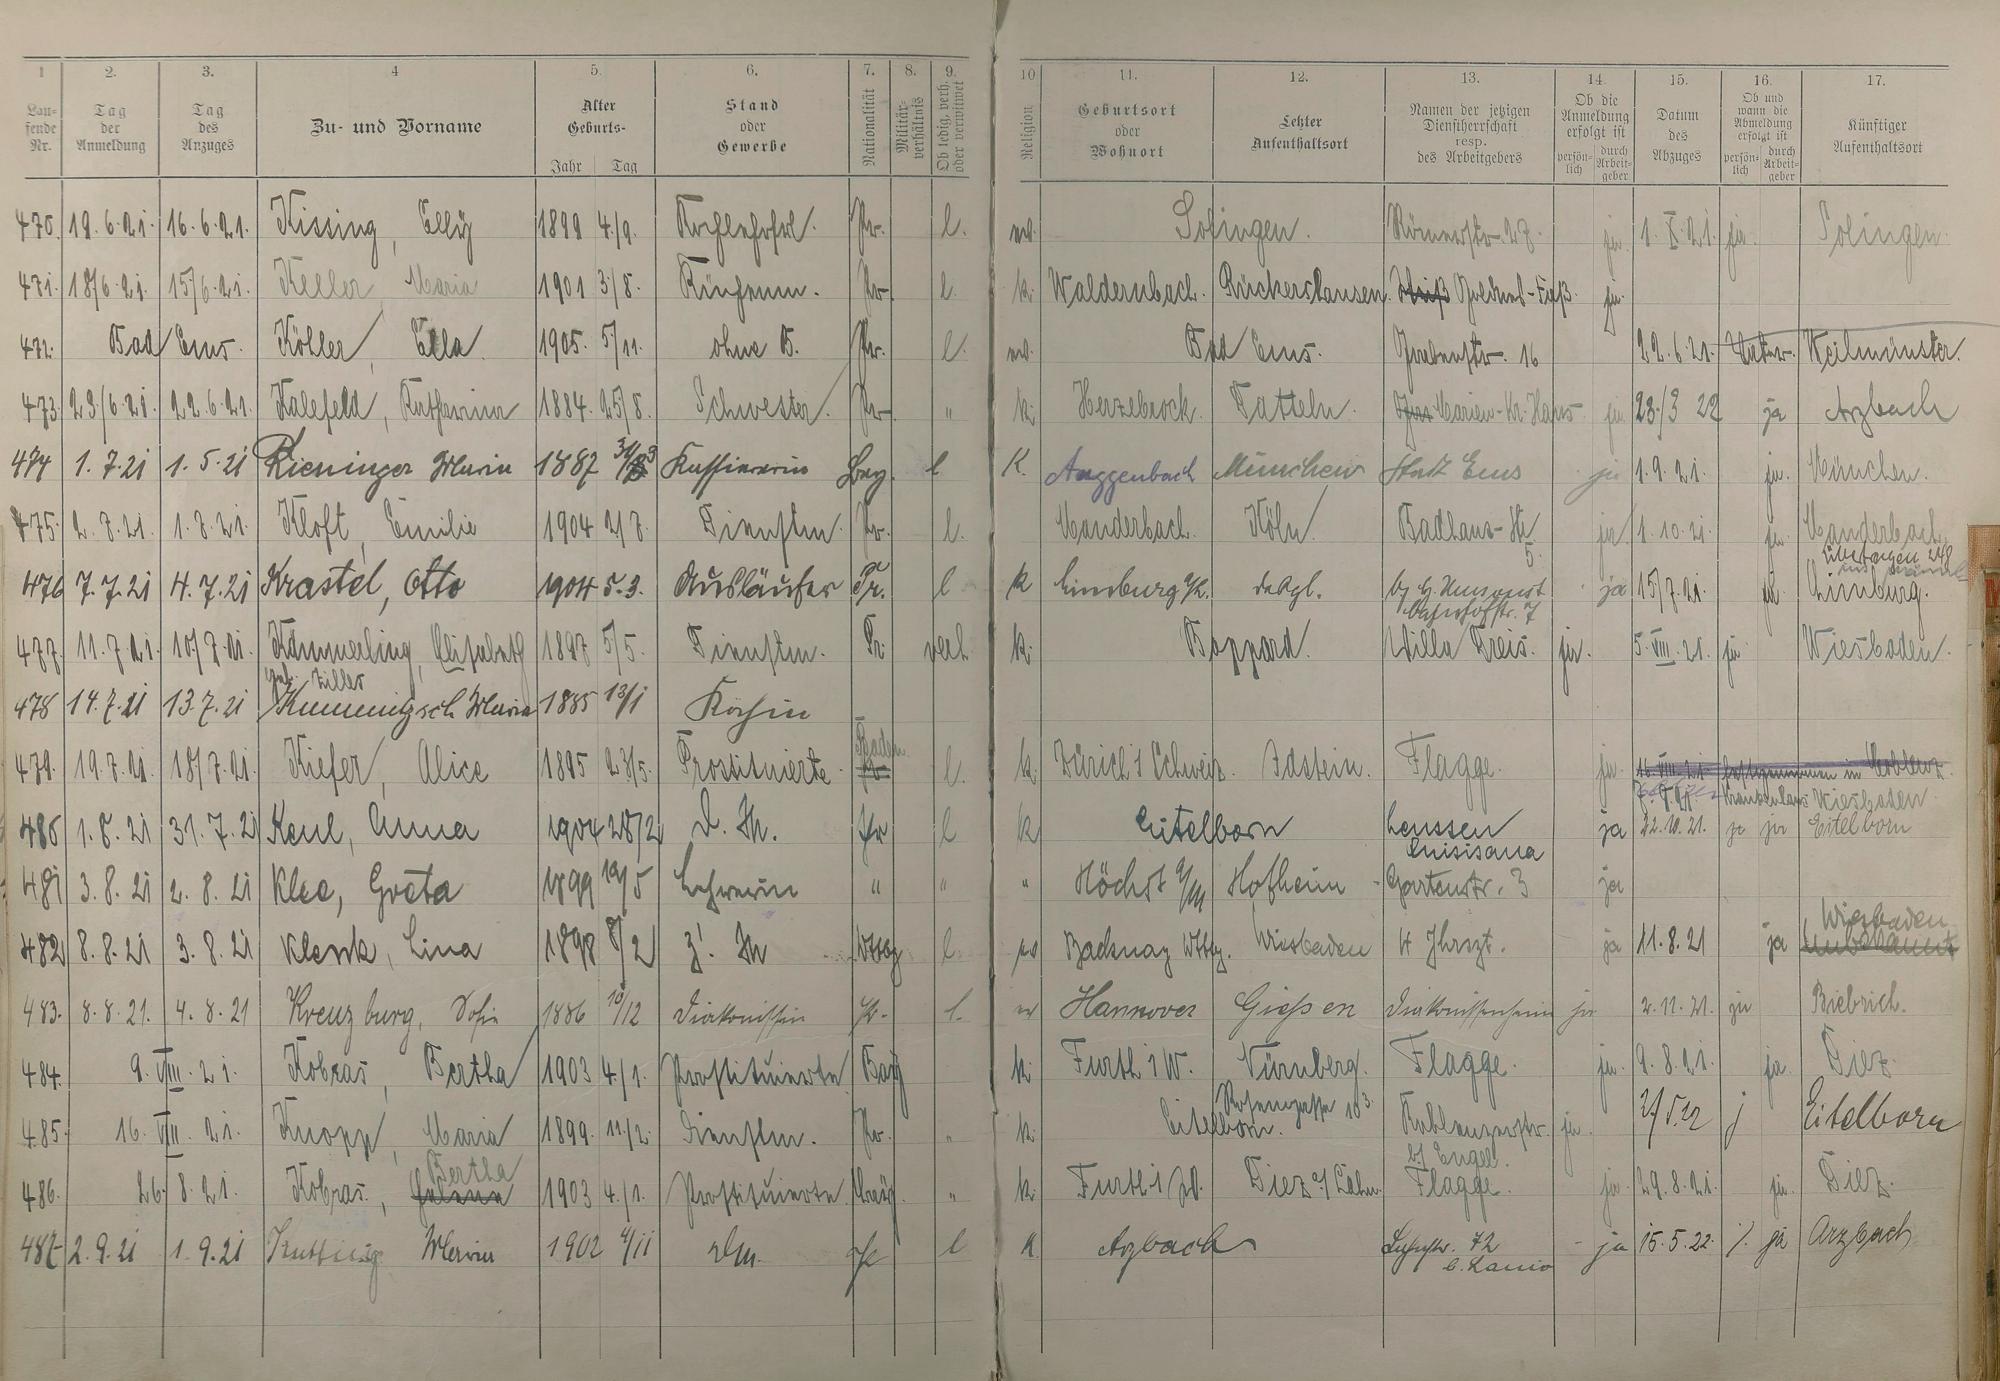 1 2. 3. 4 5. 6. 7. 8. 9. 10 11. 12. 13. 14. 15. 16. 17.
Lau-
fende
Nr.
Tag
der
Anmeldung
Tag
des
Anzuges
Zu- und Vorname
Alter
Geburts-
Jahr Tag
Stand
oder
Gewerbe
Nationalität
Militär-
verhältnis
Ob ledig, verh.
oder verwitwet
Religion
Geburtsort
oder
Wohnort
Letzter
Aufenthaltsort
Namen der jetzigen
Dienstherrschaft
resp.
des Arbeitgebers
Ob die
Anmeldung
erfolgt ist
persön-
lich
durch
Arbeit-
geber
Datum
des
Abzuges
Ob und
wann die
Abmeldung
erfolgt ist
persön-
lich
durch
Arbeit-
geber
Künftiger
Aufenthaltsort
470. 16.6.21. Kissing, Elly 1899 4/9. Pr. l. Solingen. Römerstr. 27. ja 1.X.21. ja Solingen.
471. 18/6.21. 15/6.21. Keller Maria 1901 3/8. Pr. l. k. Waldernbach. Rückershausen. ja
472. Bad Ems. Köller, Ella. 1905. 5/11. ohne B. Pr. l. Bad Ems. Grabenstr. 16 22.6.21. Weilmünster.
473. 23/6.21. 22.6.21. Kalefeld, Katharina 1884. 25/8. Schwester. Pr. " k. Herzebrock. Datteln. Marien-Kr.Haus ja 23./3 22 ja Arzbach
474 1.7.21 1.5.21 Kieninger Maria 1887 Kassiererin Bay. l K. Auggenbach München Ems ja 1.9.21. ja. München.
475. 2.7.21. 1.7.21. Kloft, Emilie 1904 2/7. Dienstm. Pr. l. Manderbach. Köln. Badhaus-Str 5. ja 1.10.21. ja Manderbach.
476 7.7.21 4.7.21 Krastel, Otto 1904 5.3. Ausläufer Pr. l k Limburg a/L. desgl. Bahnhofstr. 7 ja 15/7.21. ja Limburg.
477. 11.7.21. 10/7.21. Kämmerling, Elisabeth 1897 5/5. Dienstm. Pr. verh. k. Boppard. Villa Preis. ja. 5.VIII.21. ja Wiesbaden.
geb. Ziller
478 14.7.21 13.7.21 Maria 1885 13/1 Köchin
479. 19.7.21. 18/7.21. Kiefer, Alice 1895 23/5. Prostituierte. Baden. l. k. Zürich i Schweiz. Idstein. Flagge. ja. 16.VIII.21. festgenommen in Koblenz.
Krankenhaus Wiesbaden.
480 1.8.21 31.7.21 Keul, Anna 1904 28/2 D. M. Pr l k Eitelborn Lenssen ja 22.10.21. ja ja Eitelborn
Luisiana
481 3.8.21 2.8.21 Klee, Greta 1899 Lehrerin " " " Höchst a/M Hofheim Gartenstr. 3 ja
482 8.8.21 3.8.21 Klenk, Lina 1898 8/2 Z. M Wttbg l. ev Backnag Wttbg. Wiesbaden 4 Jhrszt. ja 11.8.21 ja Wiesbaden
unbekannt
483. 8.8.21. 4.8.21 Kreuzburg, Sofie 1886 10/12 Diakonissin Pr. l. ev Hannover Giessen Diakonissenheim ja 2.11.21. ja Biebrich.
484. 9.VIII.21. Kobras, Bertha 1903 4/1. Prostituierte Bay k. Furth i W. Nürnberg. Flagge. ja. 9.8.21. ja. Diez.
485. 16.VIII.21. Knopp, Maria 1899. 11/2. Dienstm. Pr. " k. Eitelborn. Koblenzerstr. ja. 2/5.22 j Eitelborn
b/ Engel.
Bertha
486. 26.8.21. Kobras, 1903 4./1. Prostituierte. " k. Furth i W. Diez a/Lahn. Flagge. ja. 29.8.21. ja. Diez.
487 2.9.21 1.9.21 Maria 1902 4/11 Dm. Pr l k. Arzbach 72 - ja 15.5.22. ja Arzbach